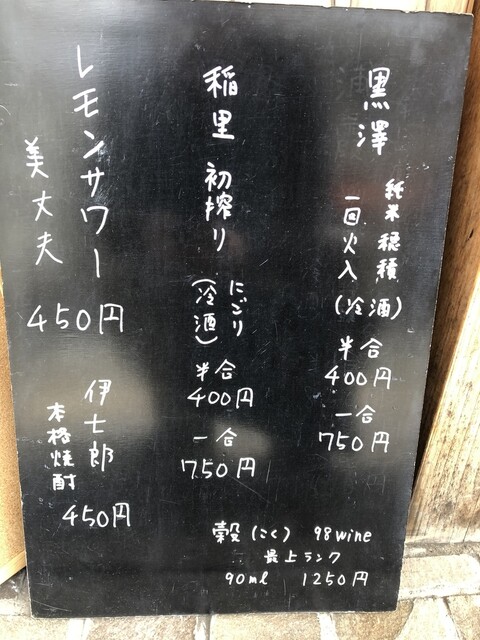 黒澤
純米 穂積
一回火入
(冷酒)
半合
400円
一合
750円
稲里 初搾り
にごり
(冷酒)
半合
400円
一合
750円
レモンサワー
美丈夫
450円
伊士郎
本格焼酎
450円
穀(こく) 98wine
最上ランク
90ml 1250円